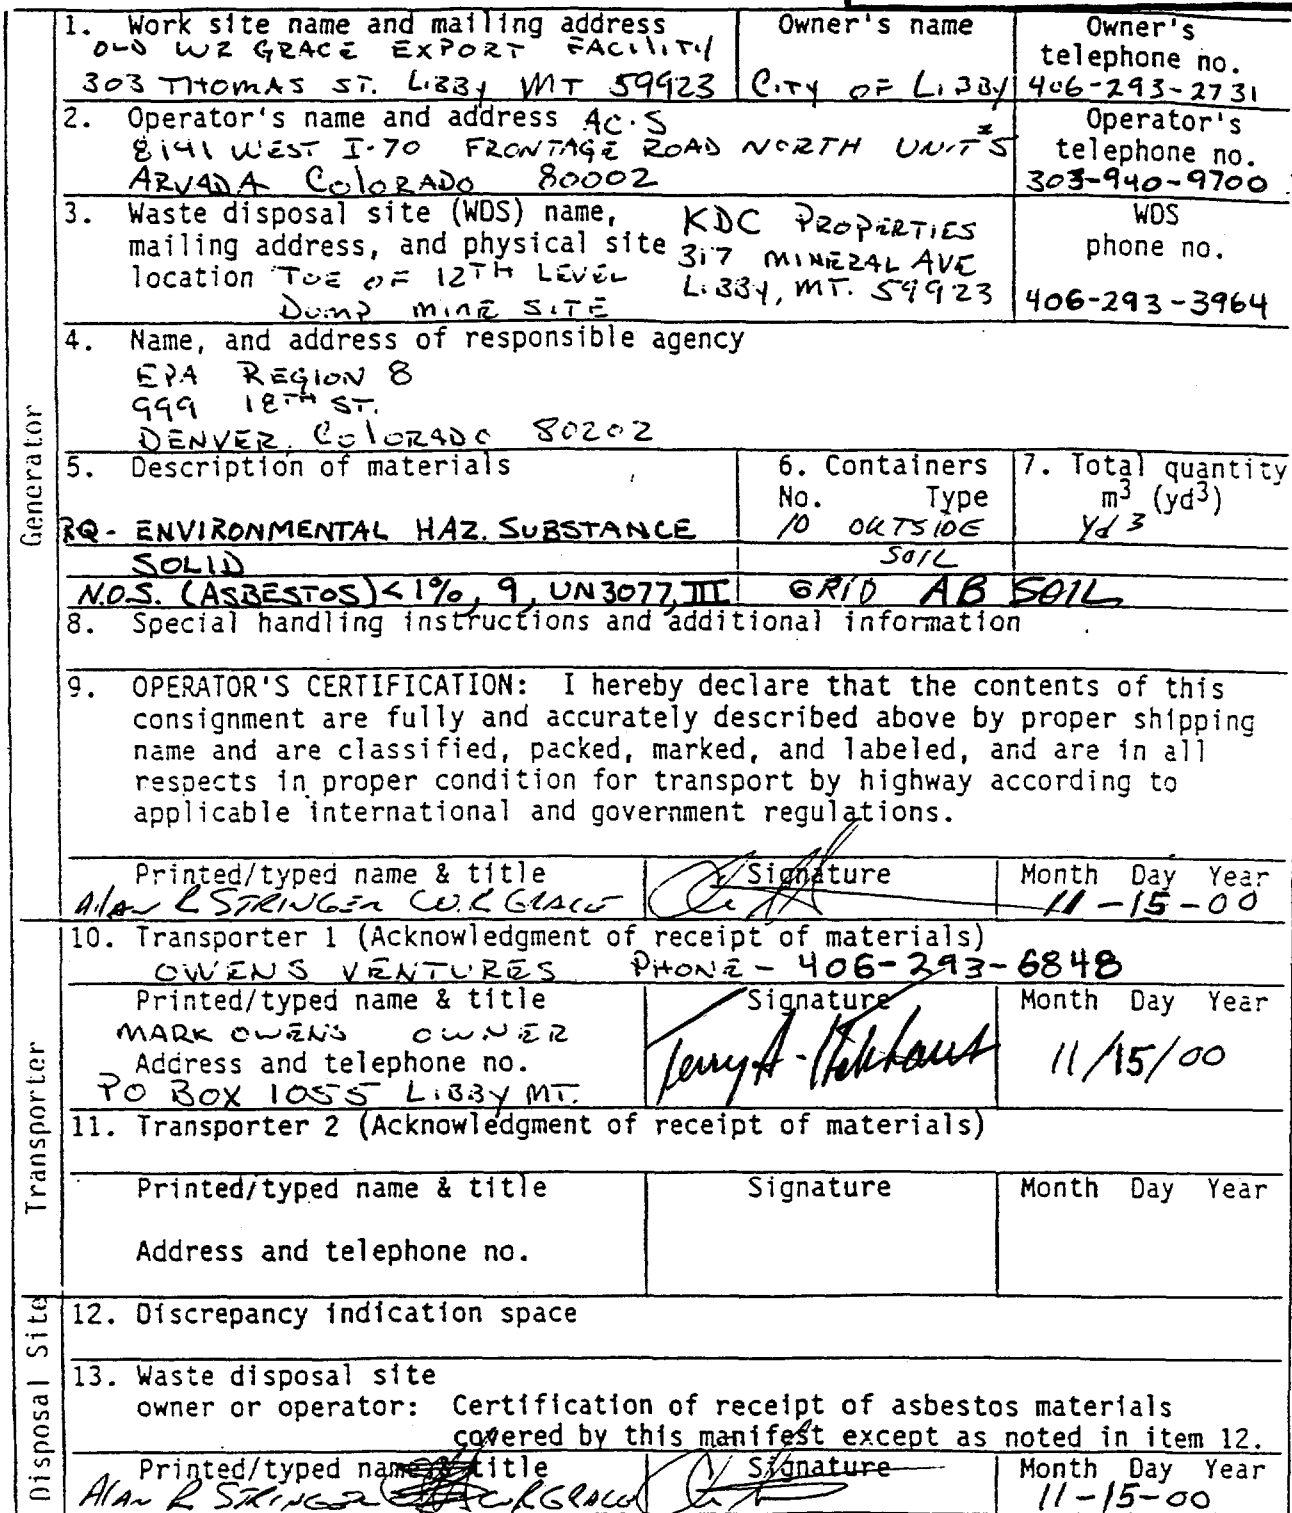 1. Work site name and mailing address
OLD WR GRACE EXPORT FACILITY
303 THOMAS ST. LIBBY MT 59923
Owner's name
CITY OF LIBBY
Owner's
telephone no.
406-293-2731
2. Operator's name and address ACS
8141 WEST I-70 FRONTAGE ROAD NORTH UNIT #5
ARVADA COLORADO 80002
Operator's
telephone no.
303-940-9700
3. Waste disposal site (WDS) name,
mailing address, and physical site
location TOE OF 12TH LEVEL
DUMP MINE SITE
KDC PROPERTIES
317 MINERAL AVE
LIBBY, MT. 59923
WDS
phone no.
406-293-3964
4. Name, and address of responsible agency
EPA REGION 8
999 18TH ST.
DENVER, COLORADO 80202
Generator
5. Description of materials
6. Containers
No. Type
7. Total quantity
m3 (yd3)
RQ - ENVIRONMENTAL HAZ. SUBSTANCE
10 OUTSIDE
Yd 3
SOLID
SOIL
N.O.S. (ASBESTOS) < 1%, 9, UN3077, III
GRID AB SOIL
8. Special handling instructions and additional information
9. OPERATOR'S CERTIFICATION: I hereby declare that the contents of this
consignment are fully and accurately described above by proper shipping
name and are classified, packed, marked, and labeled, and are in all
respects in proper condition for transport by highway according to
applicable international and government regulations.
Printed/typed name & title
Alan R STRINGER W.R GRACE
Signature
Month Day Year
11-15-00
Transporter
10. Transporter 1 (Acknowledgment of receipt of materials)
OWENS VENTURES PHONE - 406-293-6848
Printed/typed name & title
MARK OWENS OWNER
Address and telephone no.
PO BOX 1055 LIBBY MT.
Signature
Terry A
Month Day Year
11/15/00
11. Transporter 2 (Acknowledgment of receipt of materials)
Printed/typed name & title
Signature
Month Day Year
Address and telephone no.
Disposal Site
12. Discrepancy indication space
13. Waste disposal site
owner or operator: Certification of receipt of asbestos materials
covered by this manifest except as noted in item 12.
Printed/typed name & title
Alan R STRINGER W.R GRACE
Signature
Month Day Year
11-15-00